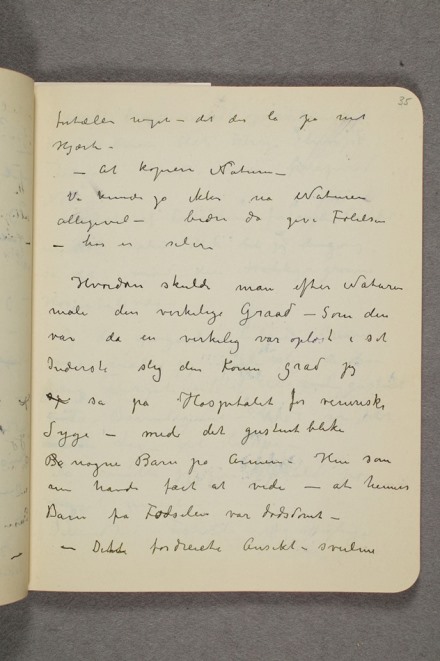 35
fortælle noget – det der lå på mit
Hjærte –
– At kopiere Naturen –
Vi kunde jo ikke nå Naturen
alligevel – bedre da give Følelsen
– hos en selv
Hvordan skulde man efter Naturen
male den virkelige Graad – Som den
var da en virkelig var opløst i sit
Inderste slig den Konen grad jeg
så på Hospitalet for veneriske
Syge – med det gustent bleke
nøgne Barn på Armen – Hun som
nu havde fået at vide – at hennes
Barn fra Fødselen var dødsdømt –
– Dette fordreiede Ansikt –